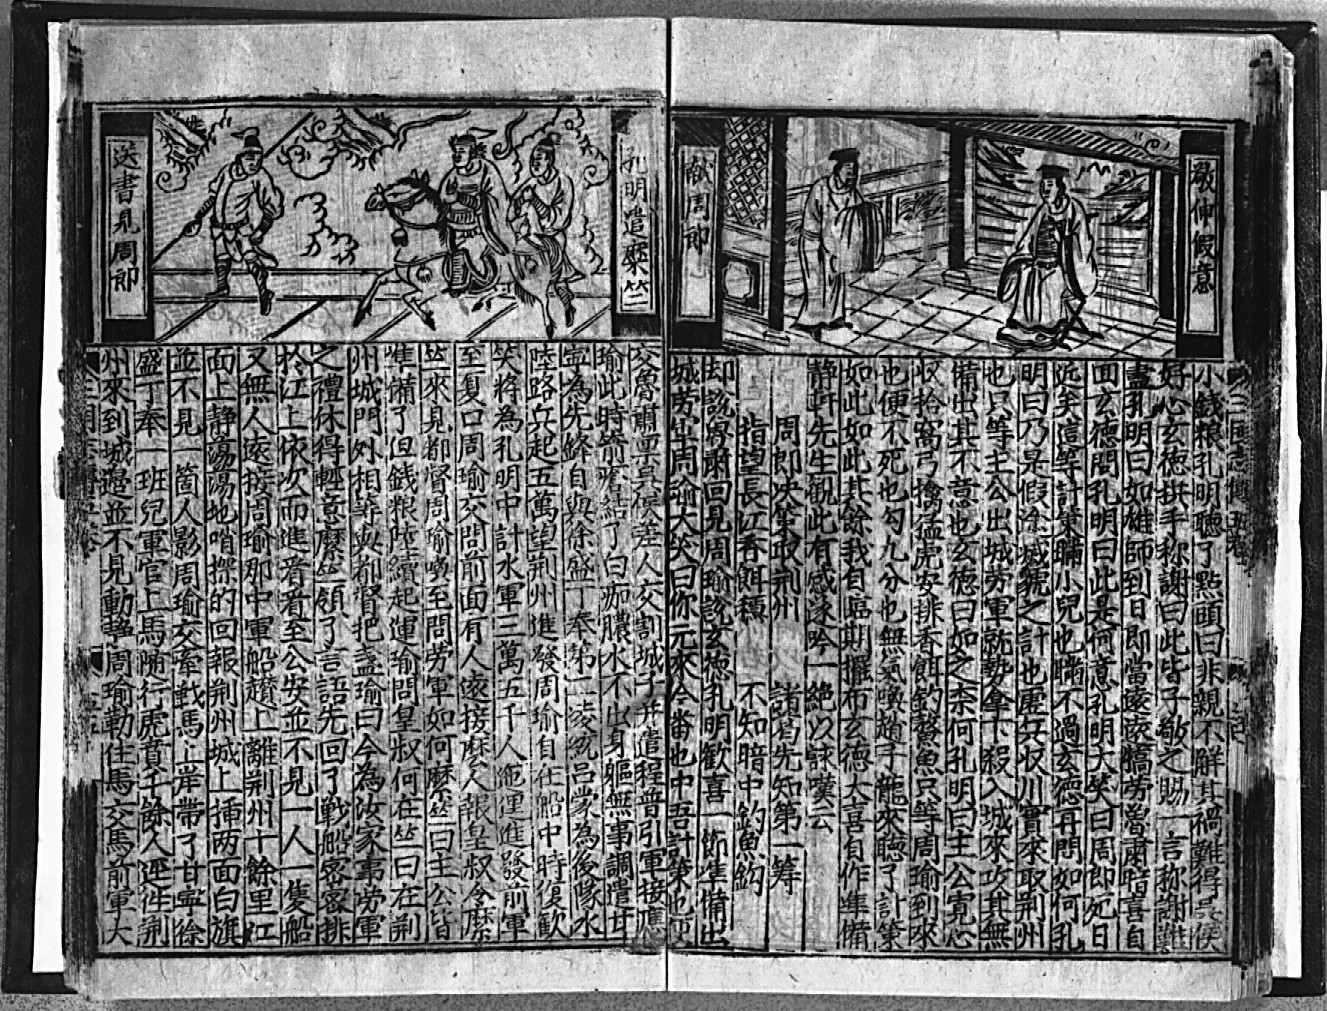 敬仲假意
獻周郎
小錢粮孔明聽了點頭曰非親不解其禍難得吳侯
好心玄德拱手称謝曰此皆子敬之賜一言称謝難
盡孔明曰如雄師到日即當遠遠犒勞魯肅暗喜自
面玄德問孔明曰此是何意孔明大笑曰周郎死日
近矣這等計策瞞小兒也瞞不過玄德再問如何孔
明曰乃是假途滅虢之計也虛兵收川實來取荆州
也只等主公出城勞軍就勢拿下殺入城來攻其無
備出其不意也玄德曰如之柰何孔明曰主公寬心
收拾窩弓擒猛虎安排香餌釣鰲魚只等周瑜到來
也便不死也勾九分也無氣喚趙子龍來聽了計策
如此如此其餘我自區期擺布玄德大喜自作準備
静軒先生観此有感遂吟一絶以誄嘆云
周郎决策取荆州 諸葛先知第一筹
指望長江香餌穩 不知暗中釣魚鈎
却說魯肅回見周瑜說玄德孔明歡喜一節準備出
城勞軍周瑜大笑曰你元來今番也中吾計第也便
孔明遣糜竺
送書見周郎
交魯肅稟吳侯差人交割城子并遣程普引軍接應
瑜此時箭瘡結了白痂膿水不出身軀無事調遣甘
寧為先鋒自與徐盛丁奉第二凌統吕蒙為後隊水
陸路兵起五萬望荆州進發周瑜自在船中時復歡
笑將為孔明中計水軍三萬五千人迤運進發前軍
至夏口周瑜交問前面有人遠接麽人報皇叔令糜
竺來見都督周瑜喚至問勞軍如何糜竺曰主公皆
准備了但錢粮陸續起運瑜問皇叔何在竺曰在荆
州城門外相等與都督把盞瑜曰今為汝家事勞軍
之禮休得輕意糜竺領了言語先回了戰船密密排
於江上依次而進看看至公安並不見一人一隻船
又無人遠接周瑜那中軍船趲上離荆州十餘里江
面上静蕩蕩地哨探的回報荆州城上插两面白旗
並不見一箇人影周瑜交牽戰馬上岸帶了甘寧徐
盛丁奉一班兒軍官上馬隨行虎賁千餘人逕往荆
州來到城邊並不見動静周瑜勒住馬交馬前軍大